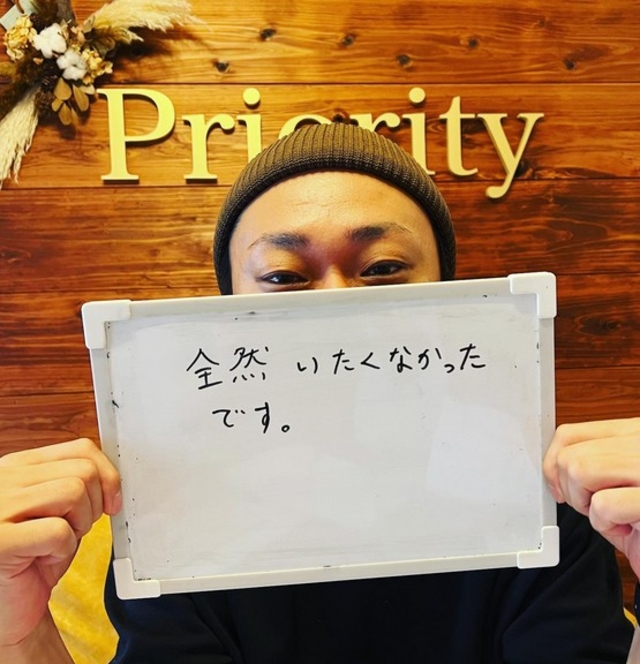 Priority
全然 いたくなかった
です。